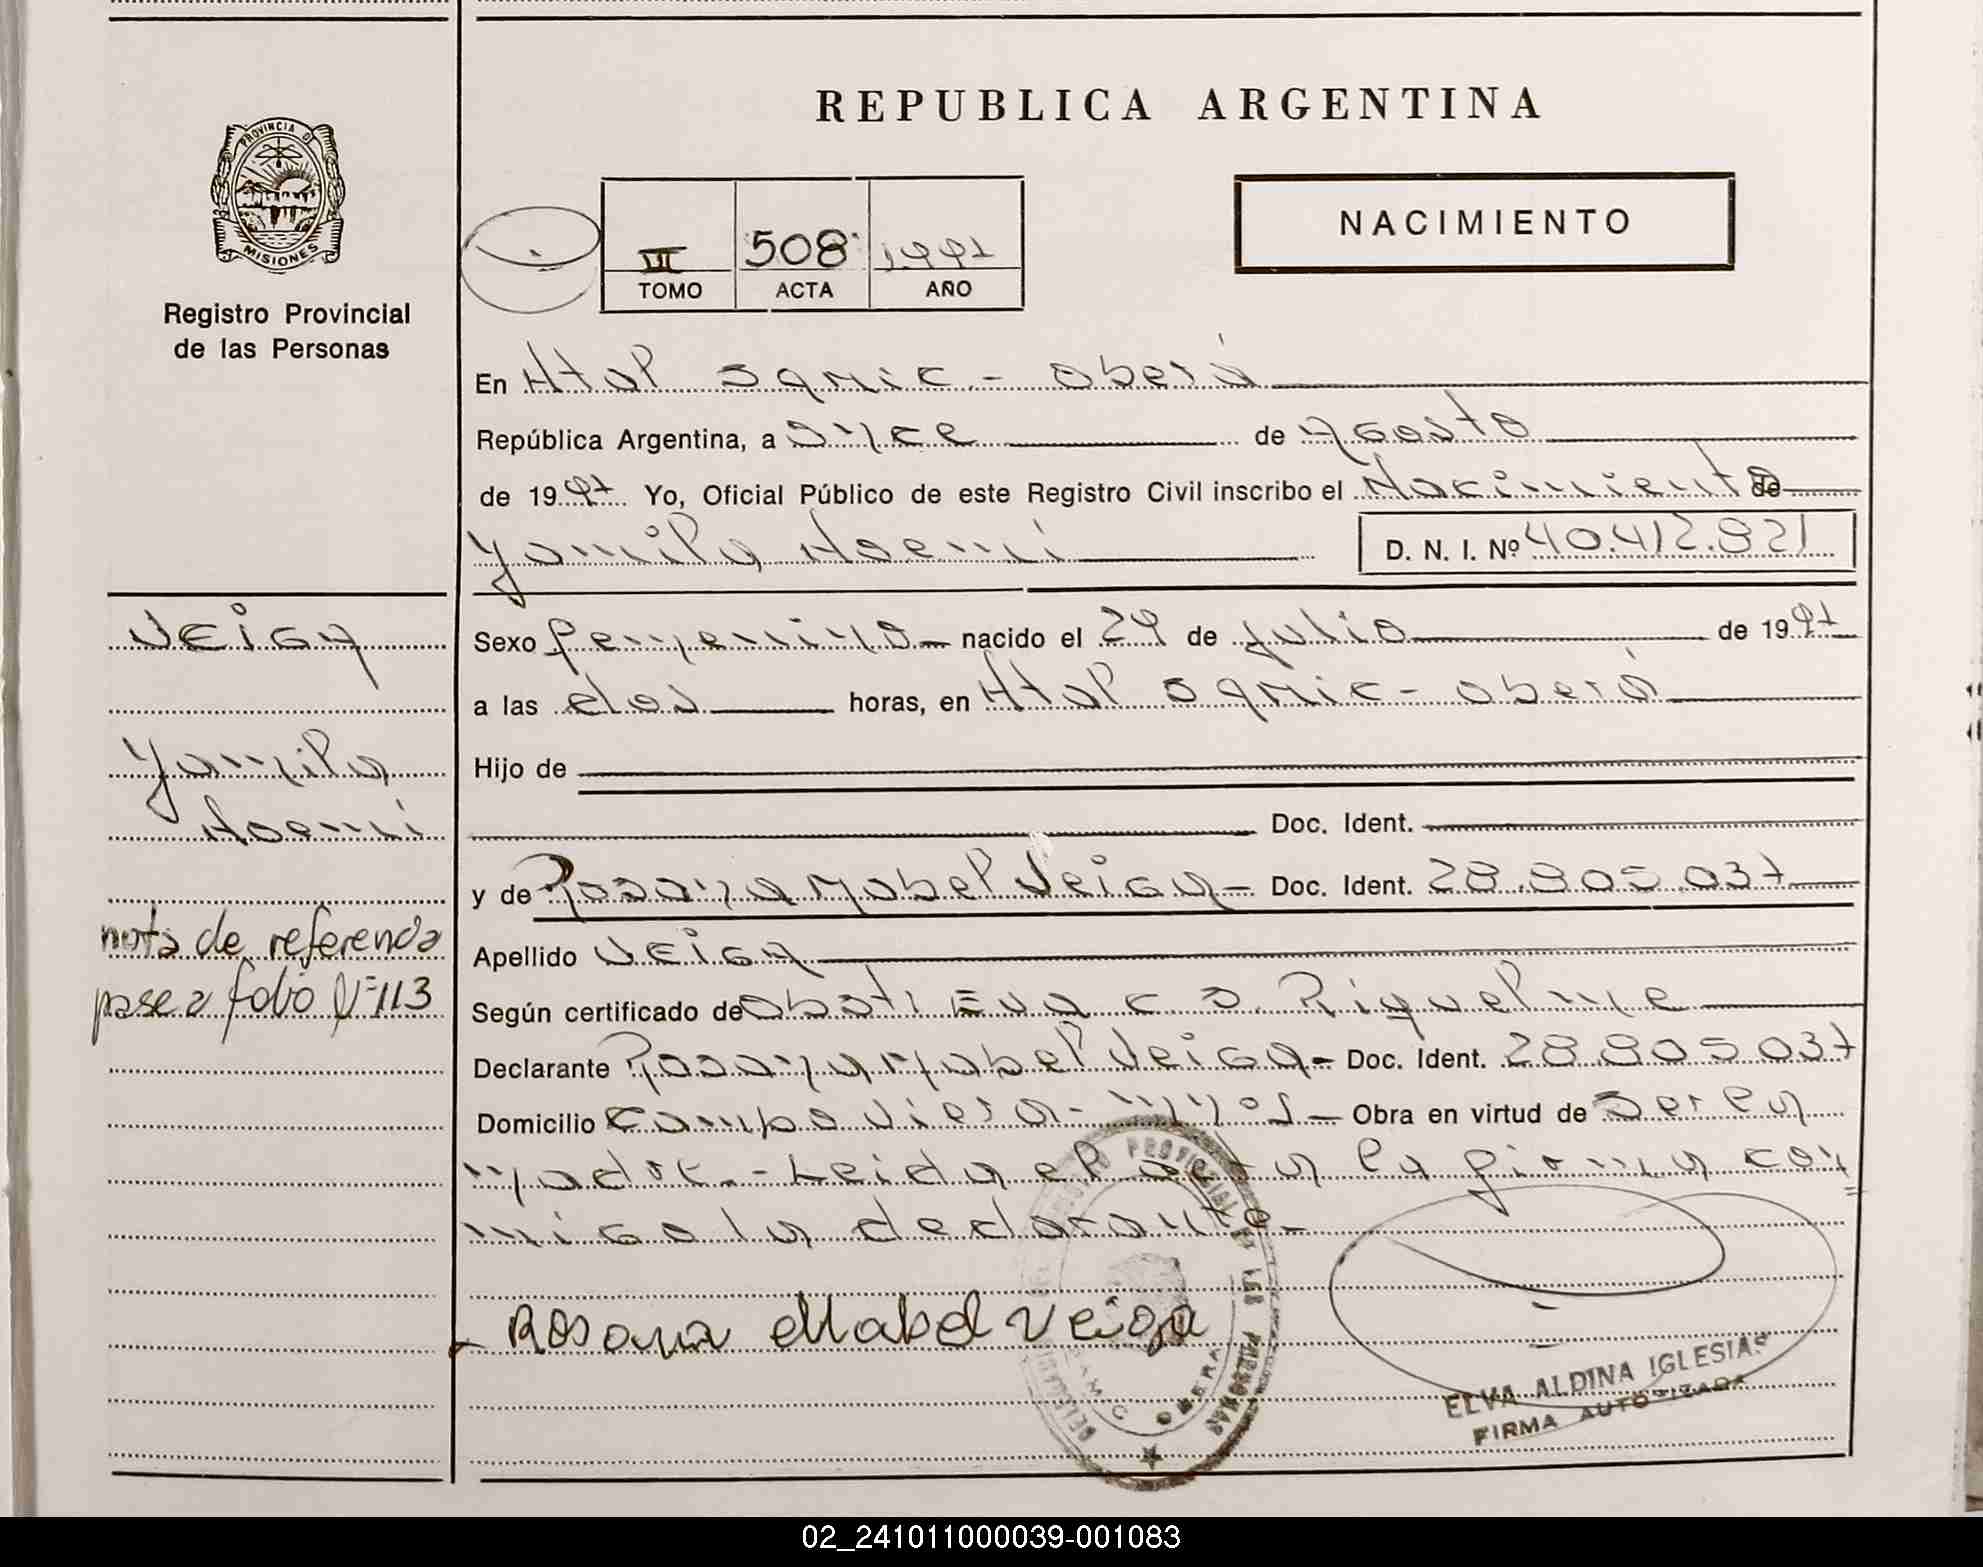 REPUBLICA ARGENTINA
PROVINCIA D
MISIONES
Registro Provincial
de las Personas
NACIMIENTO
III 508 1997
TOMO ACTA AÑO
En Htal Samic - Oberá
República Argentina, a once de Agosto
de 1997 Yo, Oficial Público de este Registro Civil inscribo el Nacimiento de
Yamila Noemi D. N. I. Nº 40.412.821
VEIGA
Yamila
Noemi
nota de referencia
pase a folio Nº 113
Sexo femenino - nacido el 29 de Julio de 1997
a las dos horas, en Htal Samic - Oberá
Hijo de
Doc. Ident.
y de Rosana Mabel Veiga - Doc. Ident. 28.805.037
Apellido VEIGA
Según certificado de Obst. Eva C D. Riquelme
Declarante Rosana Mabel Veiga - Doc. Ident. 28 805 037
Domicilio Campo Viera - Mnes - Obra en virtud de Ser la
madre. - Leida el acta la firma con
migo la declarante -
Rosana Mabel Veiga
PROVINCIAL DE LAS PERSONAS
SAMIC OBERA
ELVA ALDINA IGLESIAS
FIRMA AUTORIZADA
02_241011000039-001083